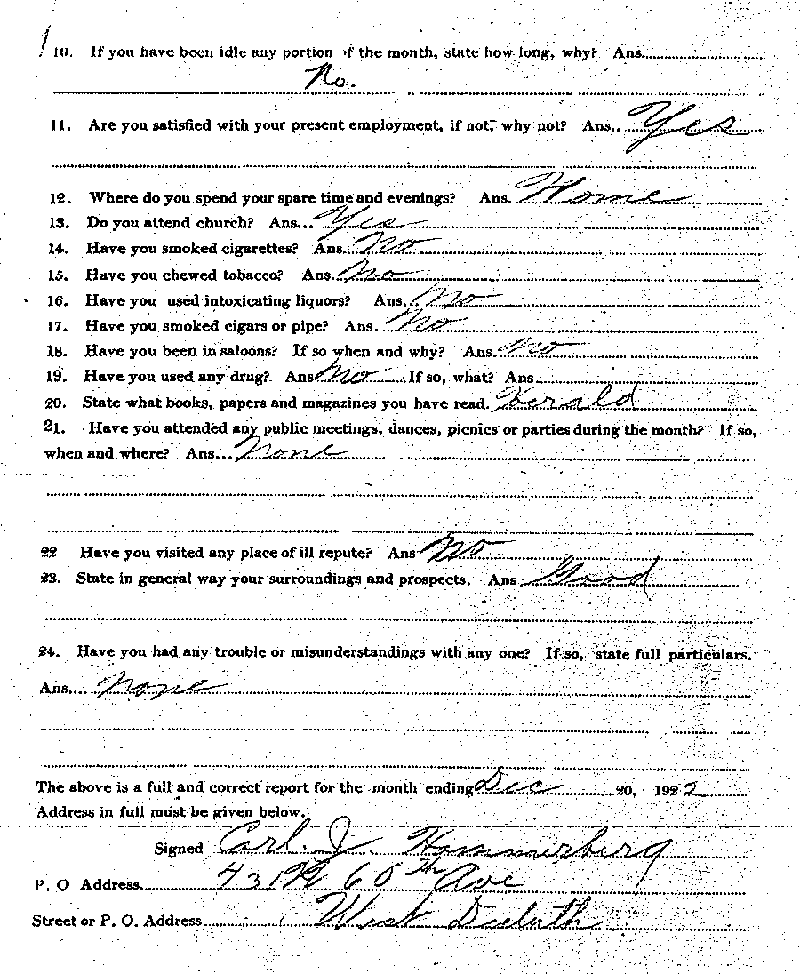 10. If you have been idle any portion of the month, state how long, why? Ans.
No.
11. Are you satisfied with your present employment, if not, why not? Ans. Yes
12. Where do you spend your spare time and evenings? Ans. Home
13. Do you attend church? Ans... Yes
14. Have you smoked cigarettes? Ans. No
15. Have you chewed tobacco? Ans. No
16. Have you used intoxicating liquors? Ans. No
17. Have you smoked cigars or pipe? Ans. No
18. Have you been in saloons? If so when and why? Ans. No
19. Have you used any drug? Ans No If so, what? Ans
20. State what books, papers and magazines you have read. Herald
21. Have you attended any public meetings, dances, picnics or parties during the month? If so,
when and where? Ans... None
22 Have you visited any place of ill repute? Ans No
23. State in general way your surroundings and prospects. Ans Good
24. Have you had any trouble or misunderstandings with any one? If so, state full particulars.
Ans... None
The above is a full and correct report for the month ending Dec 20, 1922
Address in full must be given below.
Signed Carl. J. Hammerberg
P. O Address 60th Ave
Street or P. O. Address West Duluth